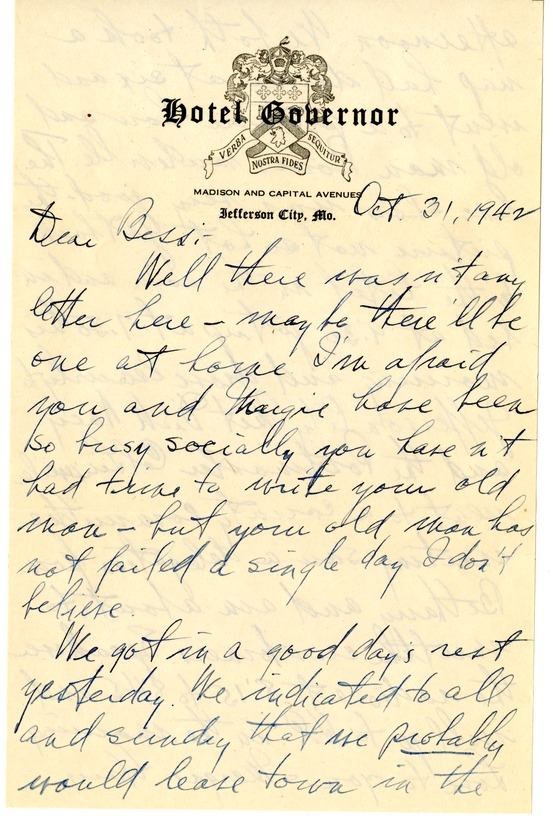 Hotel Governor
VERBA SEQUITUR
NOSTRA FIDES
MADISON AND CAPITAL AVENUES
Jefferson City, Mo.
Oct. 31, 1942
Dear Bess:-
Well there wasn't any
letter here - maybe there'll be
one at home. I'm afraid
you and Margie have been
so busy socially you haven't
had time to write your old
man - but your old man has
not failed a single day I don't
believe.
We got in a good day's rest
yesterday. We indicated to all
and sunday that we probably
would lease town in the